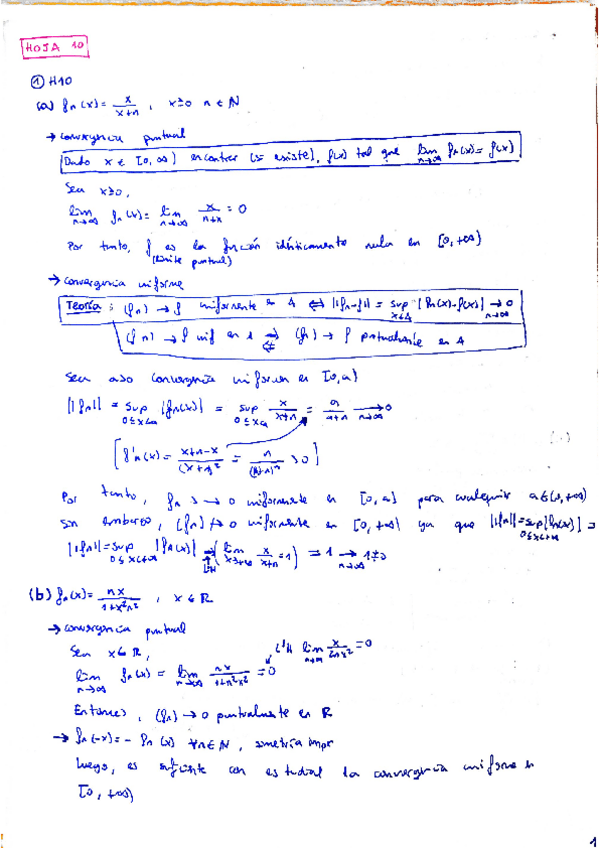 HOJA 10
① H10
(a) fₙ(x) = x/(x+n) , x≥0 n ∈ ℕ
→ convergencia puntual
Dado x ∈ [0, ∞) encontrar (si existe), f(x) tal que lim n→∞ fₙ(x) = f(x)
Sea x≥0,
lim n→∞ fₙ(x) = lim n→∞ x/(n+x) = 0
Por tanto, f es la función idénticamente nula en [0, +∞)
(límite puntual)
→ convergencia uniforme
Teoría : (fₙ) → f uniformente en A ⟺ ||fₙ-f|| = sup x∈A |fₙ(x)-f(x)| → 0 n→∞
(fₙ) → f unif en A ⇒ ⇍ (fₙ) → f puntualmente en A
Sea a>0 convergencia uniforme en [0,a)
||fₙ|| = sup 0≤x<a |fₙ(x)| = sup 0≤x<a x/(x+n) = a/(a+n) → 0 n→∞
[f'ₙ(x) = (x+n-x)/(x+n)² = n/(x+n)² > 0]
Por tanto, fₙ → 0 uniformente en [0, a] para cualquier a∈(0,+∞)
Sin embargo, (fₙ) ↛ 0 uniformente en [0, +∞) ya que ||fₙ|| = sup 0≤x<+∞ |fₙ(x)| =
||fₙ|| = sup 0≤x<+∞ |fₙ(x)| → (lim x→+∞ x/(x+n) = 1) = 1 → n→∞ 1≠0
(b) fₙ(x) = nx/(1+x²n²) , x ∈ ℝ
→ convergencia puntual
Sea x∈ℝ,
lim n→∞ fₙ(x) = lim n→∞ nx/(1+n²x²) = 0
L'H lim n→∞ x/(2nx²) = 0
Entonces, (fₙ) → 0 puntualmente en ℝ
→ fₙ(-x) = - fₙ(x) ∀n∈ℕ, simetría impar
luego, es suficiente con estudiar la convergencia uniforme en
[0, +∞)
1